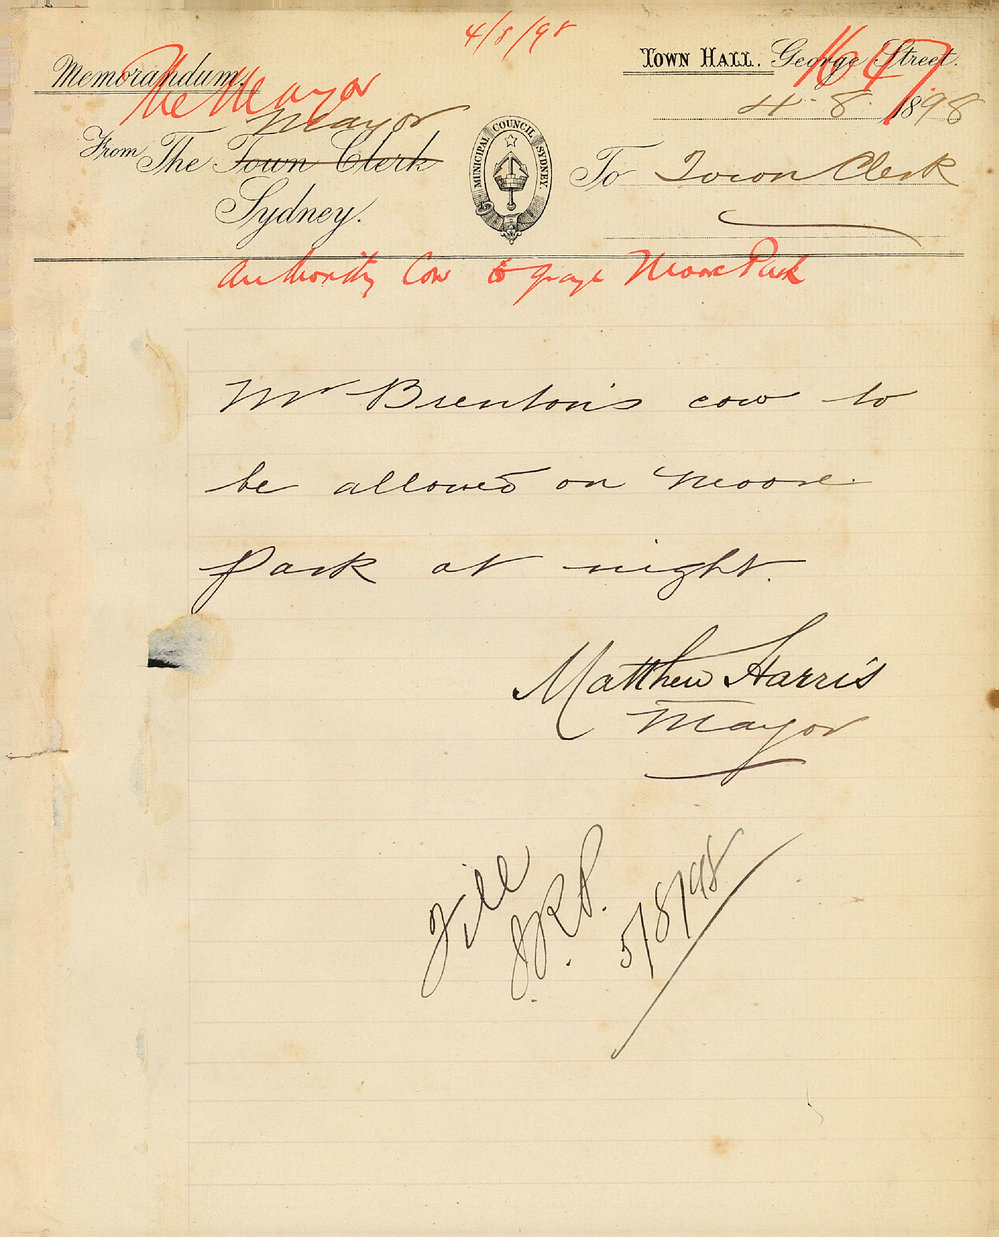 4/8/98
Memorandum.
The Mayor
TOWN HALL. George Street.
1647
4. 8. 1898
Mayor
From The Town Clerk
Sydney.
MUNICIPAL COUNCIL SYDNEY.
To Town Clerk
Authority Cow to graze Moore Park
Mr Brenton's cow to
be allowed on Moore
Park at night.
Matthew Harris
Mayor
File
J.R.P.
5/8/98